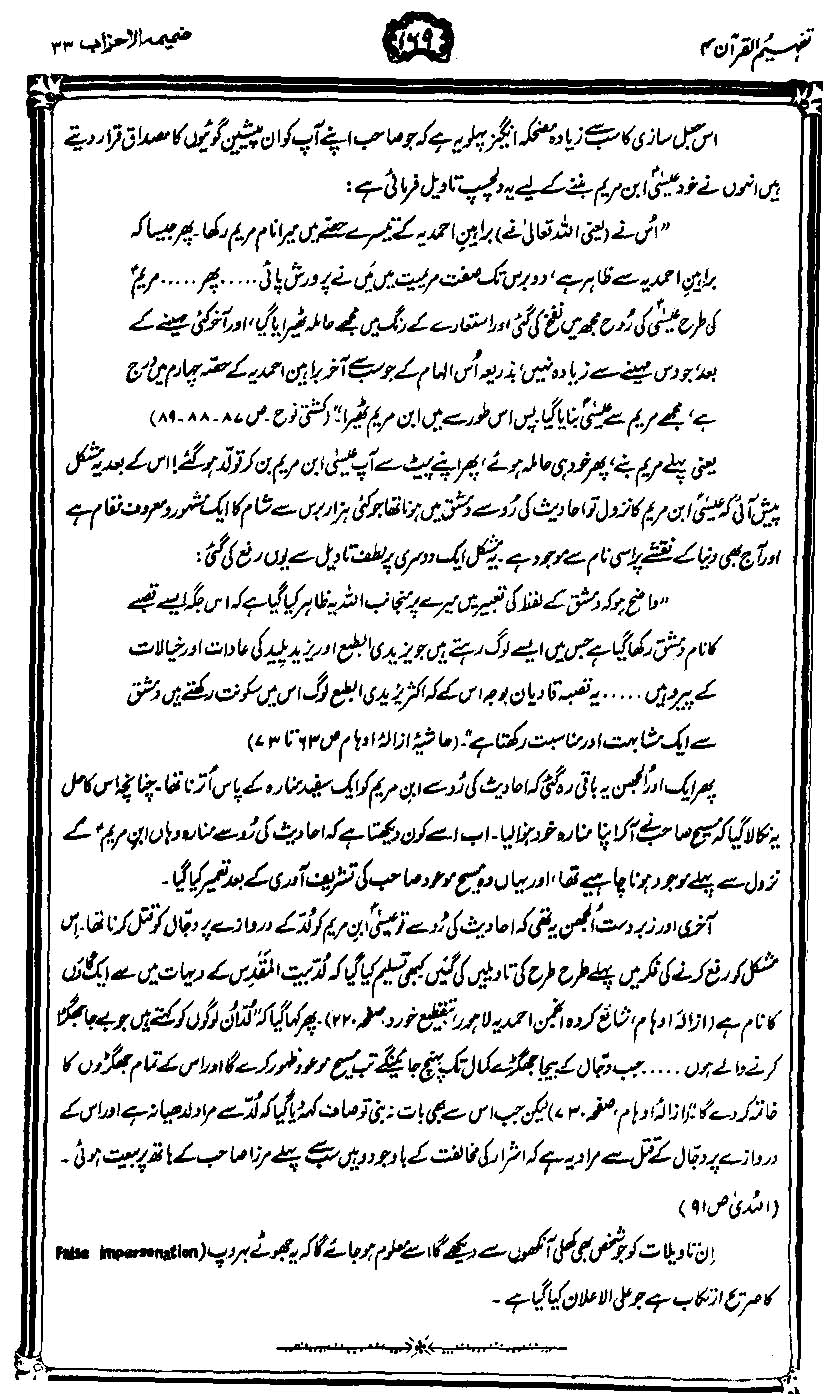 تفہیم القرآن ۴
۱۶۹
ضمیمہ الاحزاب ۳۳
اس جعل سازی کا سب سے زیادہ مضحکہ انگیز پہلو یہ ہے کہ جو صاحب اپنے آپ کو ان پیشین گوئیوں کا مصداق قرار دیتے
ہیں انہوں نے خود عیسیٰؑ ابن مریم بننے کے لیے یہ دلچسپ تاویل فرمائی ہے:
”اُس نے (یعنی اللہ تعالیٰ نے) براہینِ احمدیہ کے تیسرے حصے میں میرا نام مریم رکھا۔ پھر جیسا کہ
براہینِ احمدیہ سے ظاہر ہے، دو برس تک صفت مریمیت میں مَیں نے پرورش پائی ..... پھر ..... مریمؑ
کی طرح عیسیٰؑ کی رُوح مجھ میں نفخ کی گئی اور استعارے کے رنگ میں مجھے حاملہ ٹھیرایا گیا، اور آخر کئی مہینے کے
بعد، جو دس مہینے سے زیادہ نہیں، بذریعہ اُس الہام کے جو سب سے آخر براہین احمدیہ کے حصہ چہارم میں درج
ہے، مجھے مریم سے عیسیٰؑ بنایا گیا، پس اس طور سے میں ابن مریم ٹھیرا“۔ (کشتی نوح۔ ص ۸۷۔۸۸۔۸۹)
یعنی پہلے مریم بنے، پھر خود ہی حاملہ ہوئے، پھر اپنے پیٹ سے آپ عیسیٰؑ ابن مریم بن کر تولّد ہو گئے! اس کے بعد یہ مشکل
پیش آئی کہ عیسیٰؑ ابن مریم کا نزول تو احادیث کی رُو سے دمشق میں ہونا تھا جو کئی ہزار برس سے شام کا ایک مشہور و معروف مقام ہے
اور آج بھی دنیا کے نقشے پر اسی نام سے موجود ہے۔ یہ مشکل ایک دوسری پر لطف تاویل سے یوں رفع کی گئی:
”واضح ہو کہ دمشق کے لفظ کی تعبیر میں میرے پر منجانب اللہ یہ ظاہر کیا گیا ہے کہ اس جگہ ایسے قصبے
کا نام دمشق رکھا گیا ہے جس میں ایسے لوگ رہتے ہیں جو یزیدی الطبع اور یزید پلید کی عادات اور خیالات
کے پیرو ہیں ..... یہ قصبہ قادیان بوجہ اس کے کہ اکثر یزیدی الطبع لوگ اس میں سکونت رکھتے ہیں دمشق
سے ایک مشابہت اور مناسبت رکھتا ہے“۔ (حاشیۂ ازالۂ اوہام ص ۶۳ تا ۷۳)
پھر ایک اور اُلجھن یہ باقی رہ گئی کہ احادیث کی رُو سے ابن مریم کو ایک سفید منارہ کے پاس اُترنا تھا۔ چنانچہ اس کا حل
یہ نکالا گیا کہ مسیح صاحب نے آکر اپنا منارہ خود بنوالیا۔ اب اسے کون دیکھتا ہے کہ احادیث کی رُو سے منارہ وہاں ابنِ مریمؑ کے
نزول سے پہلے موجود ہونا چاہیے تھا، اور یہاں وہ مسیح موعود صاحب کی تشریف آوری کے بعد تعمیر کیا گیا۔
آخری اور زبردست اُلجھن یہ تھی کہ احادیث کی رُو سے تو عیسیٰؑ ابن مریم کو لُدّ کے دروازے پر دجّال کو قتل کرنا تھا۔ اِس
مشکل کو رفع کرنے کی فکر میں پہلے طرح طرح کی تاویلیں کی گئیں کبھی تسلیم کیا گیا کہ لُدّ بیت المقدّس کے دیہات میں سے ایک گاؤں
کا نام ہے (ازالۂ اوہام، شائع کردہ انجمن احمدیہ لاہور، بتقطیع خورد، صفحہ ۲۲۰)۔ پھر کہا گیا کہ ”لُدّ اُن لوگوں کو کہتے ہیں جو بے جا جھگڑا
کرنے والے ہوں ..... جب دجّال کے بیجا جھگڑے کمال تک پہنچ جائینگے تب مسیح موعود ظہور کرے گا اور اس کے تمام جھگڑوں کا
خاتمہ کر دے گا“ (ازالۂ اوہام، صفحہ ۷۳۰) لیکن جب اس سے بھی بات نہ بنی تو صاف کہہ دیا گیا کہ لُدّ سے مراد لدھیانہ ہے اور اس کے
دروازے پر دجّال کے قتل سے مراد یہ ہے کہ اشرار کی مخالفت کے باوجود وہیں سب سے پہلے مرزا صاحب کے ہاتھ پر بیعت ہوئی۔
(الہُدیٰ ص ۹۱)
اِن تاویلات کو جو شخص بھی کھلی آنکھوں سے دیکھے گا اسے معلوم ہو جائے گا کہ یہ جھوٹے بہروپ (False impersonation
کا صریح ارتکاب ہے جو علی الاعلان کیا گیا ہے۔